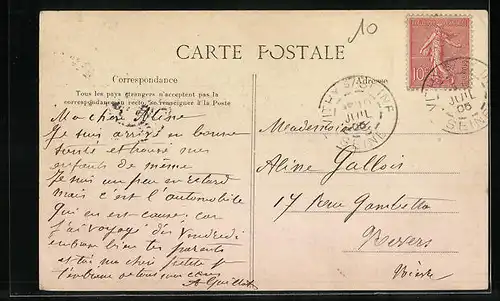 10
CARTE POSTALE
Correspondance
Tous les pays étrangers n'acceptent pas la
correspondance au recto, se renseigner à la Poste
Adresse
10
VITRY S/ SEINE
JUIL
05
SEINE
JUIL
05
SEINE
Ma chère Aline
Je suis arrivé en bonne
santé et trouvé mes
enfants de même
Je suis un peu en retard
mais c'est l'automobile
qui en est cause car
j'ai voyagé dès Vendredi
embrasse bien tes parents
et toi ma chère petite je
t'embrasse de tout mon cœur
A Guillot
Mademoiselle
Aline Gallois
17 Rue Gambetta
Nevers
Nièvre